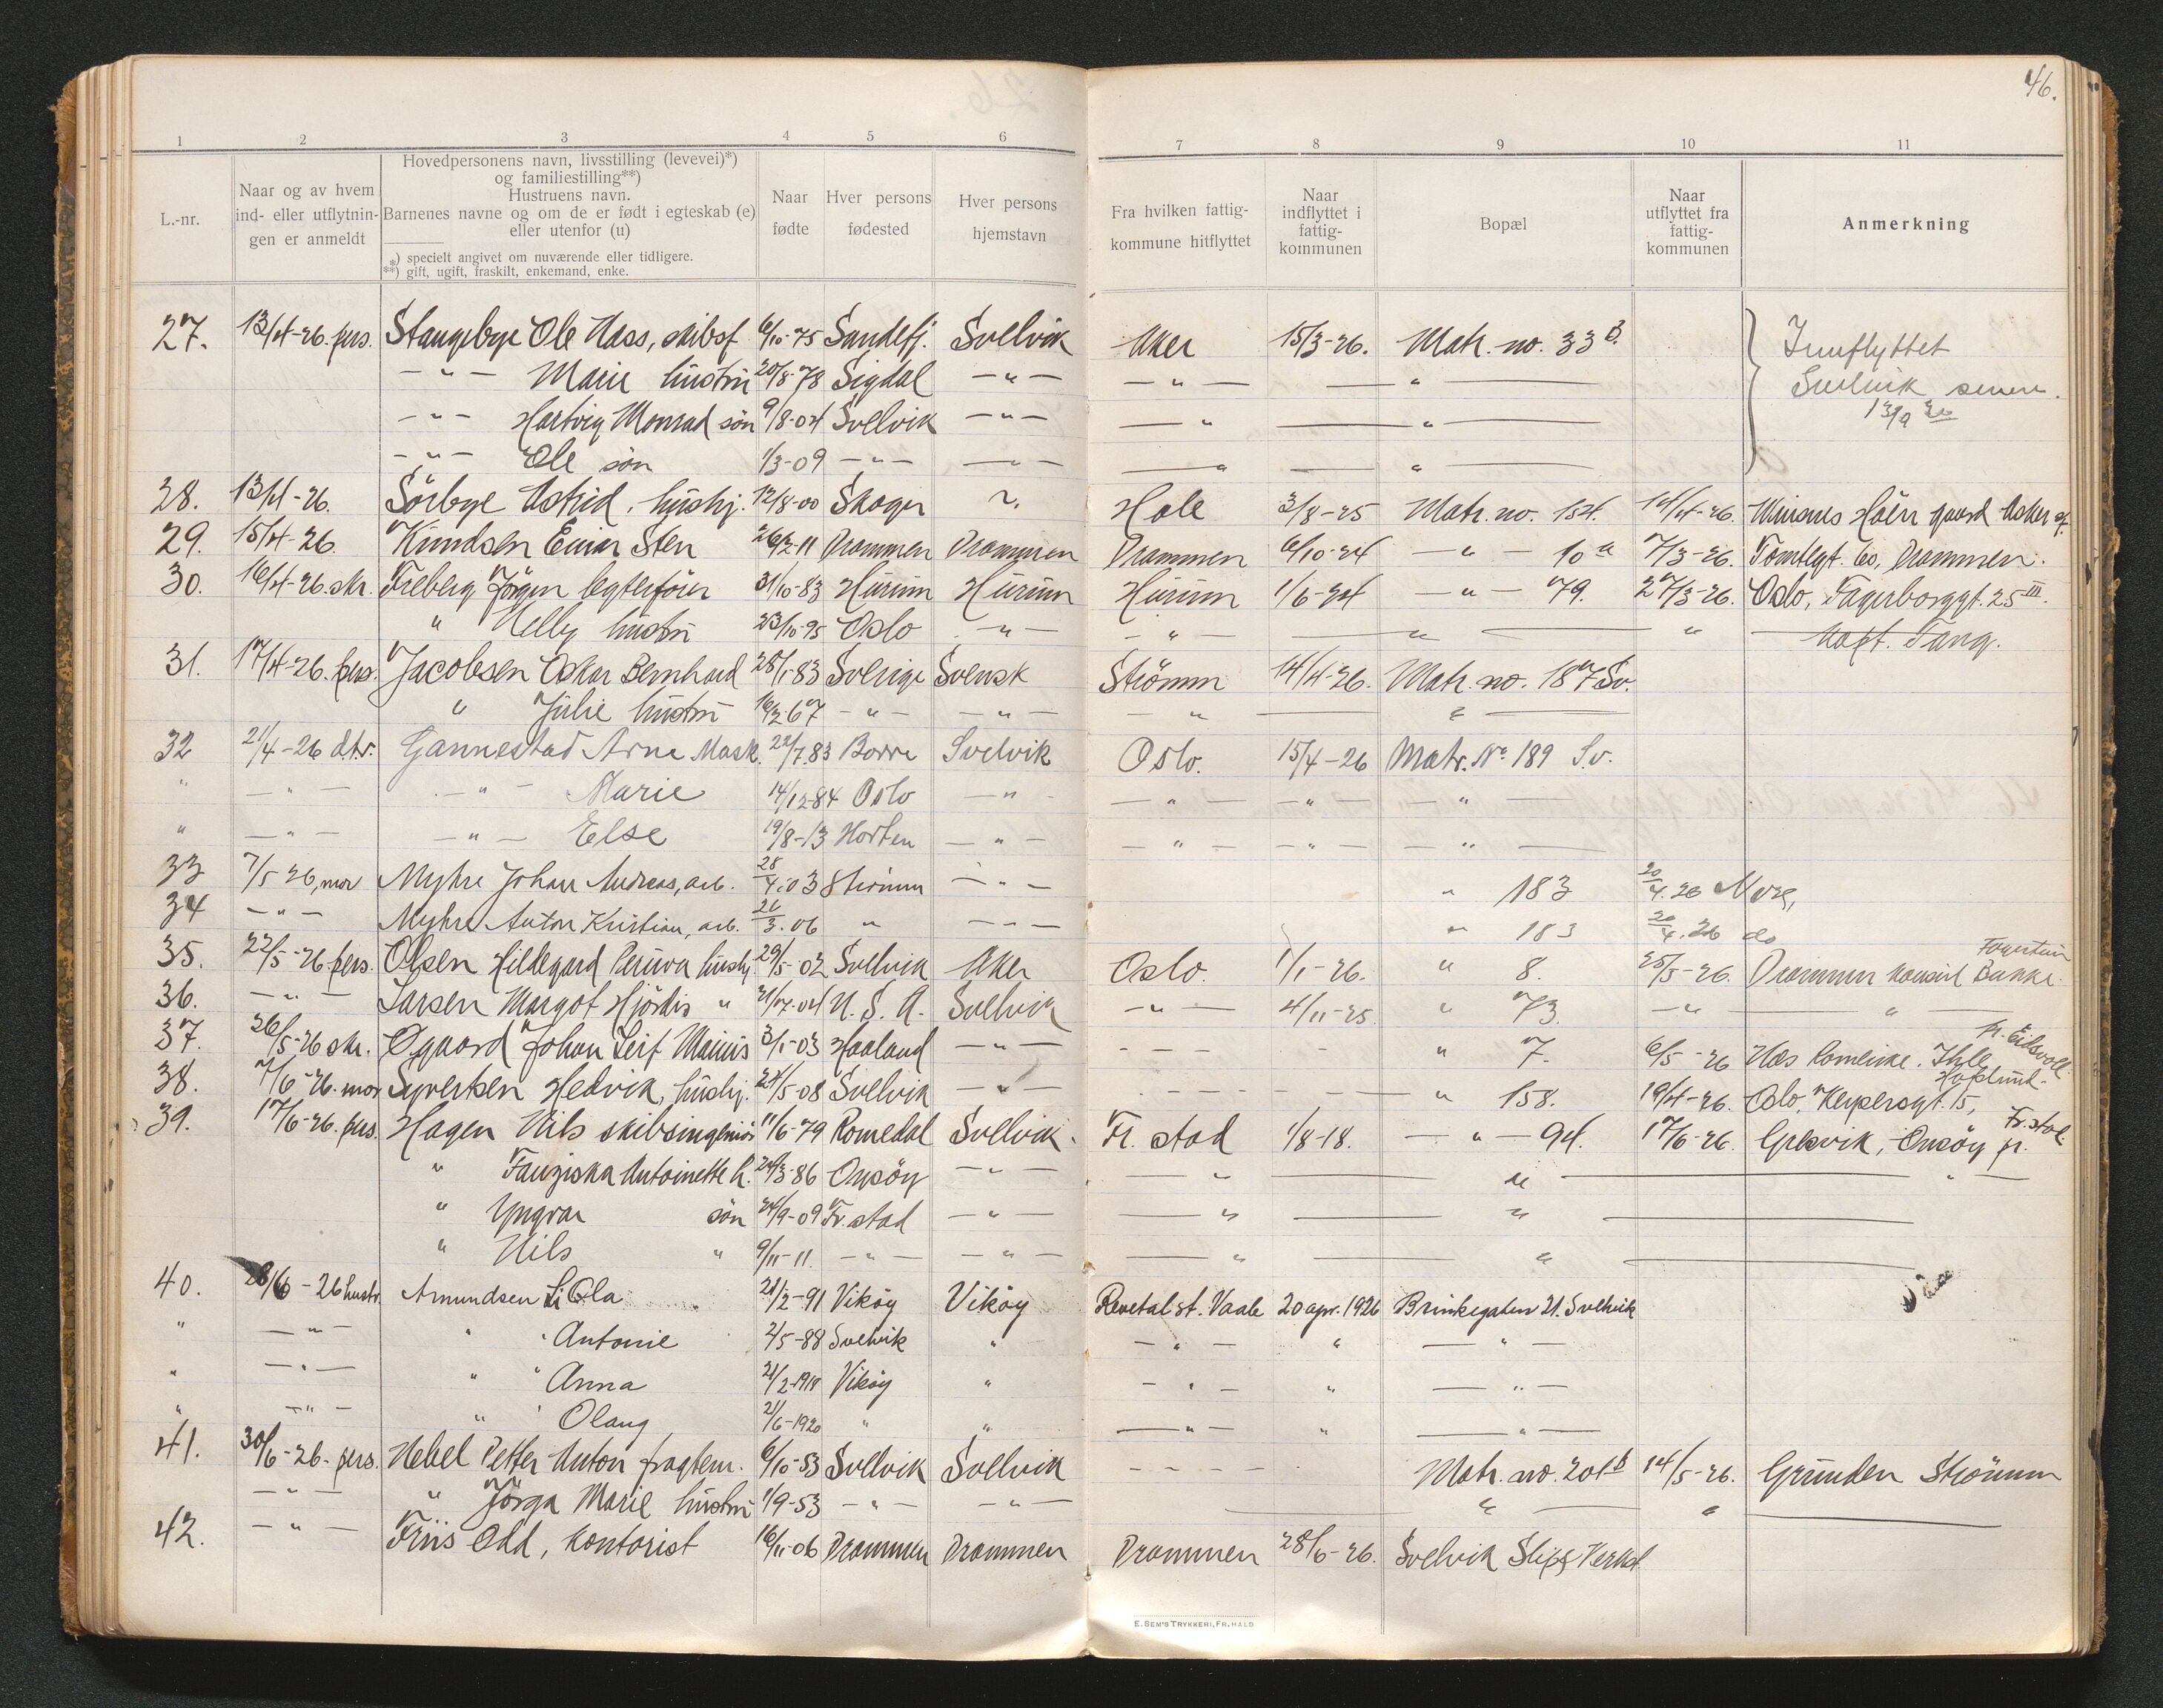 46.
1 2 3 4 5 6 7 8 9 10 11
L.-nr.
Naar og av hvem
ind- eller utflytnin-
gen er anmeldt
Hovedpersonens navn, livsstilling (levevei)*)
og familiestilling**)
Hustruens navn.
Barnenes navne og om de er født i egteskab (e)
eller utenfor (u)
*) specielt angivet om nuværende eller tidligere.
**) gift, ugift, fraskilt, enkemand, enke.
Naar
fødte
Hver persons
fødested
Hver persons
hjemstavn
Fra hvilken fattig-
kommune hitflyttet
Naar
indflyttet i
fattig-
kommunen
Bopæl
Naar
utflyttet fra
fattig-
kommunen
Anmerkning
27. 13/4-26. pers. Stangebye Ole Hass, skibsf. 6/10-75 Sandefj. Svelvik Aker 15/3-26. Matr. no. 33 B. Innflyttet
— " — Marie hustru 20/8-78 Sigdal — " — — " — — " — Svelvik senere.
— " — Hartvig Monrad søn 9/8-04 Svelvik — " — — " — — " — 13/9 30
— " — Ole søn 1/3-09 — " — — " — — " — — " —
28. 13/4-26. Sørbye Astrid, hushj. 12/8-00 Skoger ~. Hole 3/8-25 Matr. no. 154. 14/4-26. gaard Asker
29. 15/4-26. Knudsen Einar Sten 26/2-11 Drammen Drammen Drammen 6/10-24 — " — 10 a 7/3-26. Tomtegt. 60, Drammen.
30. 16/4-26. skr. Freberg Jørgen 31/10-83 Hurum Hurum Hurum 1/6-24 — " — 79. 27/3-26. Oslo, Fagerborggt. 25 III.
" Nelly hustru 23/10-95 Oslo — " — — " — — " — " Kapt. Tang.
31. 17/4-26. pers. Jacobsen Oskar Bernhard 28/1-83 Sverige Svensk Strømm 14/4-26. Matr. no. 187 Sv.
" Julie hustru 16/2-67 — " — — " — — " — — " —
32 21/4-26 d.tr. Gannestad Arne Mask. 22/7.83 Borre Svelvik Oslo. 15/4-26 Matr. No 189 Sv.
" — " — — " — Marie 14/12-84 Oslo — " — " — — " — — " —
" — " — — " — Else 19/8-13 Horten — " — — " — — " — — " —
33 7/5 26, mor Myhre Johan Andreas, arb. 28/4.03 Strømm — " — " 183 20/4.26 Mors,
34 — " — Myhre Anton Kristian, arb. 26/3.06 " — " — " 183 20/4.26 do
35. 22/5-26 pers. Olsen Hildegard hushj. 29/5-02 Svelvik Aker Oslo. 1/1-26. " 8. 25/5-26. Drammen konsul Bakke.
36. — " — Larsen Margot Hjørdis " 31/7-04 U. S. A. Svelvik — " — 4/11-25. " 73. — " — — " —
37. 26/5-26 skr. Øgaard Johan Leif 3/1-03 Haaland — " — — — — " 7. 6/5-26 Næs Romerike.
38. 7/6-26. mor Syvertsen Hedvik, hushj. 24/5-08 Svelvik — " — — — — " 158. 19/4-26. Oslo, Keysersgt. 15,
39. 17/6-26. pers. Hagen Nils skibsingeniør 11/6-79 Romedal Svelvik. Fr. stad 1/8-18. — " — 94. 17/6-26. Gresvik, Onsøy pr. Fr.stad.
" Antoinette h. 24/3-86 Onsøy — " — — " — " — " —
" Yngvar søn 24/9-09 Fr. stad — " — — " — "
" Nils " 9/11-11. — " — — " — — " — "
40. 28/6-26 hustr. Amundsen Ola 21/2-91 Vikøy Vikøy Revetal st. Vaale 20 apr. 1926 Brinkegaten 21. Svelvik
" — " — " Antonie 2/5-88 Svelvik " — " — " — " —
" — " — " Anna 21/2-1918 Vikøy " — " — " — " —
" — " — " Olaug 21/6-1920 " " — " — " — " —
41. 30/6-26. pers. Hebel Petter Anton fragtem. 6/10-53 Svelvik Svelvik — — — Matr. no. 201 B 14/5-26. Grunden Strømm
— " — " Jørga Marie hustru 1/9-53 — " — — " — " "
42. — " — Friis Odd, kontorist 16/11-06 Drammen Drammen Drammen 28/6-26. Svelvik Slip & Verkst.
E. SEM'S TRYKKERI, FR.HALD